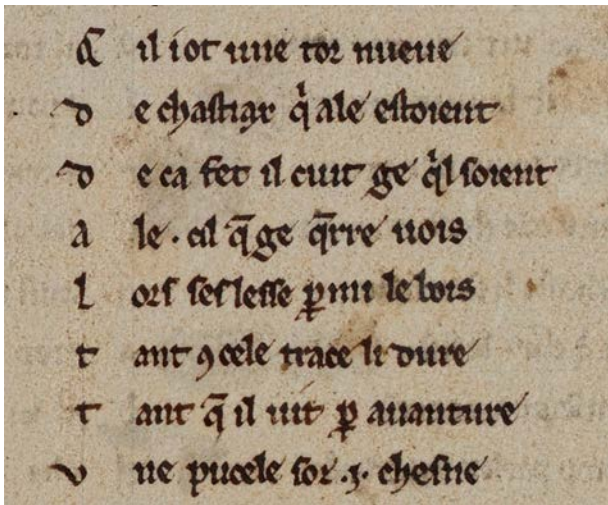 Q il iot une tor nueue
D e chastiax qͥ ale estoient
D e ca fet il cuit ge qͥl soient
A le . cil q̄ ge q̄rre uois
L ors ses lesse ꝑmi le bois
T ant ꝯ cele trace li dure
T ant q̄ il uit ꝑ auanture
V ne pucele soz .j. chesne